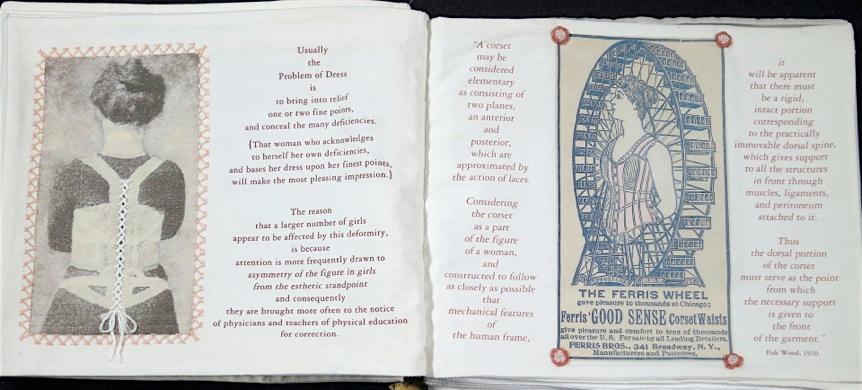 Usually
the
Problem of Dress
is
to bring into relief
one or two fine points,
and conceal the many deficiencies.
{That woman who acknowledges
to herself her own deficiencies,
and bases her dress upon her finest points,
will make the most pleasing impression.}
The reason
that a larger number of girls
appear to be affected by this deformity,
is because
attention is more frequently drawn to
asymmetry of the figure in girls
from the esthetic standpoint
and consequently
they are brought more often to the notice
of physicians and teachers of physical education
for correction.
"A corset
may be
considered
elementary
as consisting of
two planes,
an anterior
and
posterior,
which are
approximated by
the action of laces.
Considering
the corset
as a part
of the figure
of a woman,
and
constructed to follow
as closely as possible
that
mechanical features
of
the human frame,
THE FERRIS WHEEL
gave pleasure to thousands at Chicago;
Ferris' GOOD SENSE Corset Waists
give pleasure and comfort to tens of thousands
all over the U.S. For sale by all Leading Retailers.
FERRIS BROS., 341 Broadway, N.Y.,
Manufacturers and Patentees.
it
will be apparent
that there must
be a rigid,
intact portion
corresponding
to the practically
immovable dorsal spine,
which gives support
to all the structures
in front through
muscles, ligaments,
and peritoneum
attached to it.
Thus
the dorsal portion
of the corset
must serve as the point
from which
the necessary support
is given to
the front
of the garment."
Fisk Wood, 1910.